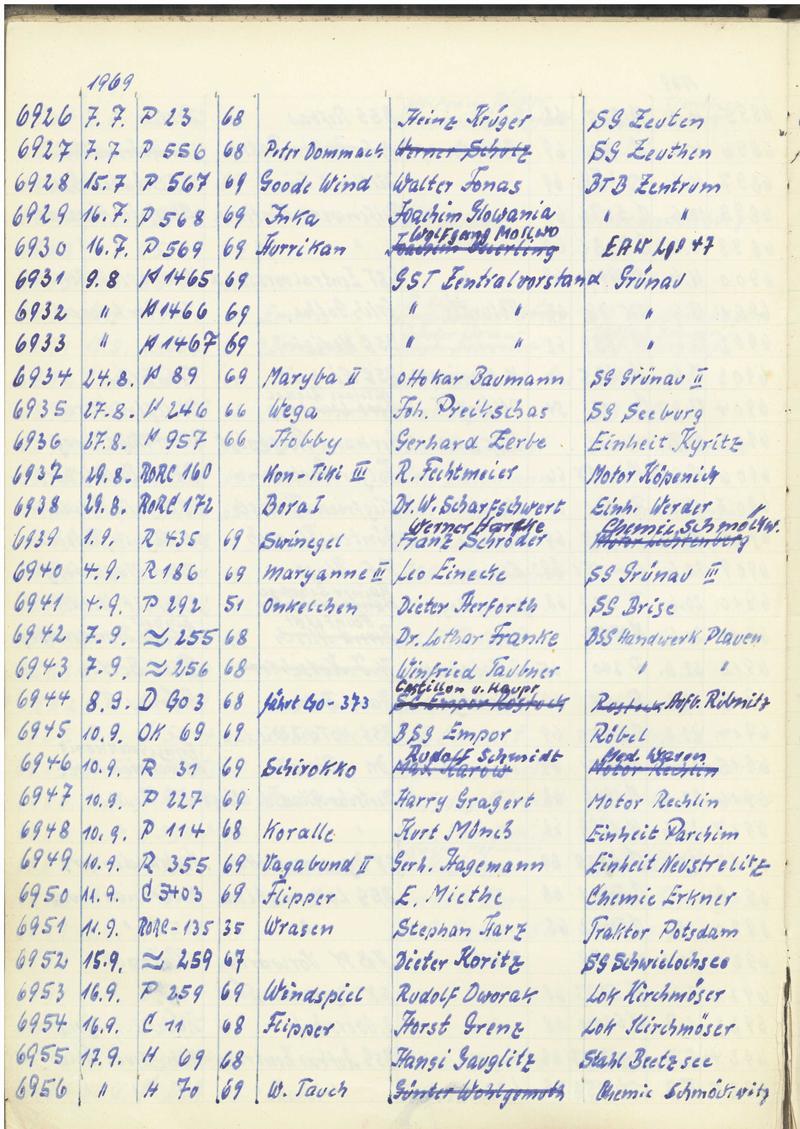 1969
6926 7.7. P 23 68 Heinz Krüger SG Zeuten
6927 7.7 P 556 68 Peter Dommach Werner Scholz SG Zeuthen
6928 15.7 P 567 69 Goode Wind Walter Jonas BTB Zentrum
6929 16.7. P 568 69 Inka Joachim Slowania " "
Wolfgang Mollwo
6930 16.7. P 569 69 Hurrikan Joachim EAW 47
6931 9.8 H 1465 69 GST Zentralvorstand Grünau
6932 " H 1466 69 " " "
6933 " H 1467 69 " " "
6934 24.8. H 89 69 Maryba II Ottokar Baumann SG Grünau II
6935 27.8. H 246 66 Wega Joh. Preikschas SG Seeburg
6936 27.8. H 957 66 Hobby Gerhard Zerbe Einheit Kyritz
6937 29.8. RORC 160 Kon-Tiki III R. Fechtmeier Motor Köpenick
6938 29.8. RORC 172 Bora I Dr. W. Scharfschwert Einh. Werder
Werner Chemie Schmöckw.
6939 1.9. R 435 69 Swinegel Franz Schröder Motor Lichtenberg
6940 4.9. R 186 69 Maryanne III Leo Einecke SG Grünau III
6941 4.9. P 292 51 Onkelchen Dieter Herforth SG Brise
6942 7.9. ≈ 255 68 Dr. Lothar Franke BSG Handwerk Plauen
6943 7.9. ≈ 256 68 Winfried Taubner " "
Castillon u. Haupt
6944 8.9. D GO3 68 fährt GO-373 SG Empor Rostock Rostock Aufb. Ribnitz
6945 10.9. OK 69 69 BSG Empor Röbel
Rudolf Schmidt Med. Waren
6946 10.9. R 31 69 Schirokko Max Karow Motor Rechlin
6947 10.9. P 227 69 Harry Gragert Motor Rechlin
6948 10.9. P 114 68 Koralle Kurt Münch Einheit Parchim
6949 10.9. R 355 69 Vagabund II Gerh. Hagemann Einheit Neustrelitz
6950 11.9. C 3403 69 Flipper E. Miethe Chemie Erkner
6951 11.9. RORC-135 35 Wrasen Stephan Farz Traktor Potsdam
6952 15.9. ≈ 259 67 Dieter Koritz SG Schwielochsee
6953 16.9. P 259 69 Windspiel Rudolf Dworak Lok Kirchmöser
6954 16.9. C 11 68 Flipper Horst Grenz Lok Kirchmöser
6955 17.9. H 69 68 Hansi Gauglitz Stahl Beetzsee
6956 " H 70 69 W. Tauch Günter Wohlgemuth Chemie Schmöckwitz